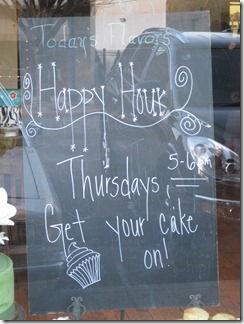 Todays Flavors
Happy Hour
Thursdays 5-6pm
Get your cake
on!